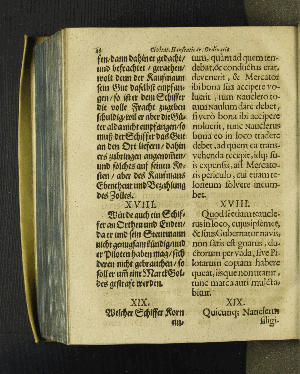 Civitat. Hanseatic. &c. Ordinatio
sen/dann dahin er gedacht/
und befrachtet/gerathen/
wolt denn der Kauffmann
sein Gut daselbst empfan-
gen/so ist er dem Schiffer
die volle Fracht zugeben
schuldig/wil er aber die Gü-
ter alda nicht empfangen/so
muß der Schiffer das Gut
an den Ort liefern/dahin
ers zubringen angenommen/
und solches auf seinen Ko-
sten/aber des Kauffmans
Ebentheur und Bezahlung
des Zolles.
XVIII.
Würde auch ein Schif-
fer an Orthen und Enden/
da er und sein Steurmann
nicht genugsam kündig/und
er Piloten haben mag/sich
deren nicht gebrauchen/so
soll er um eine Marck Gol-
des gestraft werden.
XIX.
Welcher Schiffer Korn
tum, quàm ad quem ten-
debat, & conductus erat,
devenerit, & Mercator
ibi bona sua accipere vo-
luerit, tum nauclero to-
tum naulum dare debet,
si verò bona ibi accipere
noluerit, tunc nauclerus
bona eò in loco tradere
debet, ad quem ea trans-
vehenda recepit, idq; su-
is expensis, ast Mercato-
ris periculo, cui etiam te-
lonium solvere incum-
bet.
XVIII.
Quod si etiam naucle-
rus in loco, cujus ipsemet,
& suus Gubernator navis,
non satis est gnarus, du-
ctorum per vada, sive Pi-
lotarum copiam habere
queat, iisque non utatur,
tunc marca auri mulcta-
bitur.
XIX.
Quicunq; Nauclerus
siligi-